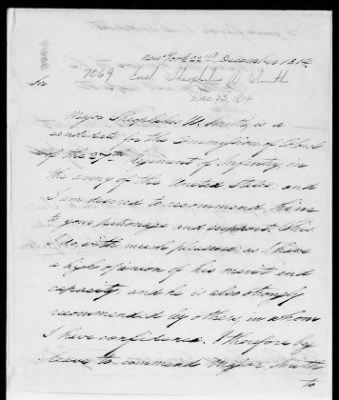 New York 22nd December 1814
7069 Encl. Theophilus W. Smith
Dec 23, 1814
Sir
Major Theophilus W. Smith, is a
candidate for the Commission of
of the 27th Regiment of Infantry in
the army of the United States, and
I am desired to recommend him
to your patronage and support. This
I do, with much pleasure, as I have
a high opinion of his merit and
capacity, and he is also strongly
recommended by others, in whom
I have confidence. I therefore beg
leave to commend Major Smith
to